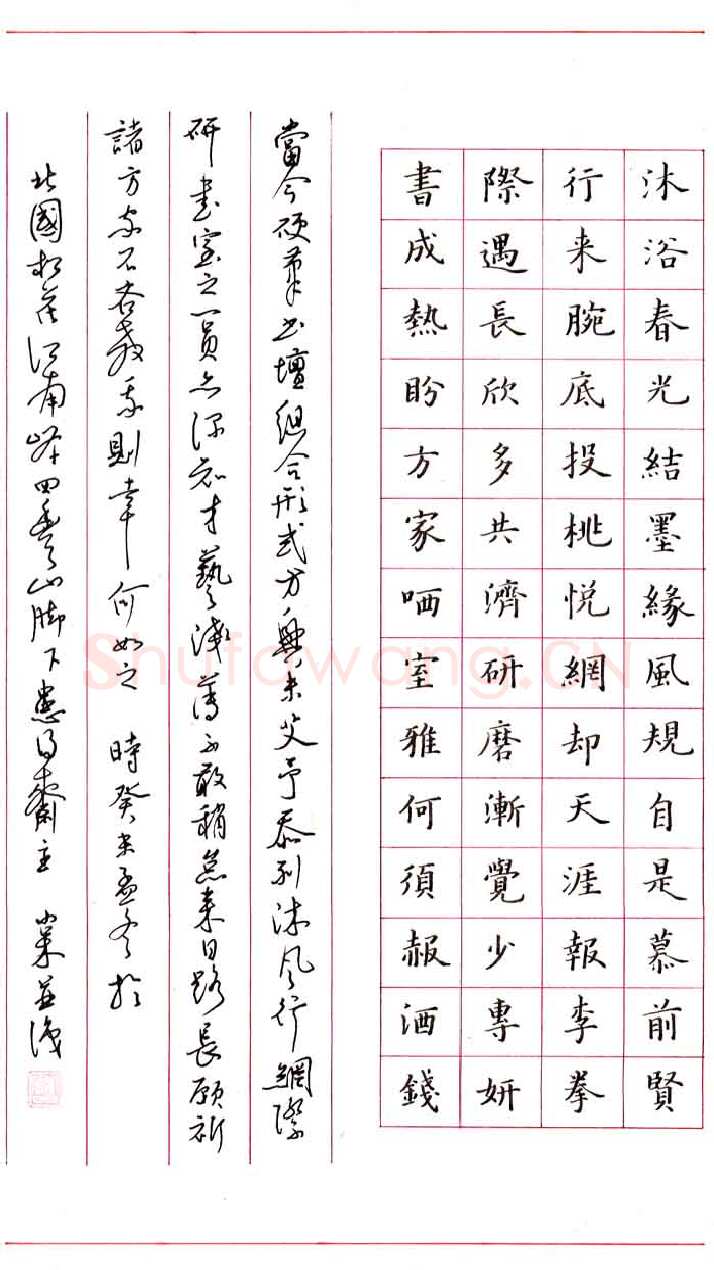 沐浴春光結墨緣風規自是慕前賢
行来腕底投桃悦網却天涯報李拳
際遇長欣多共濟研磨漸覺少專妍
書成熱盼方家哂室雅何須赧酒錢
當今硬筆书壇組合形式方興未艾予忝列沐风行網際
研书室之一員亦深知才藝淺薄不敢稍怠来日路長願祈
諸方家不吝教我則幸何如之 時癸未孟冬於
北國松花江南岸四山脚下齋主 並識
Shufawang.CN